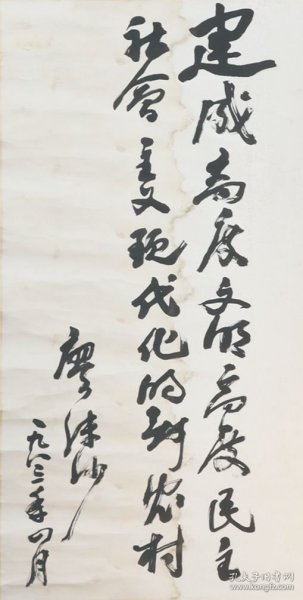 建成高度文明高度民主
社會主义現代化的新农村
廖沫沙
一九八三年四月
孔夫子旧书网
www.kongfz.com